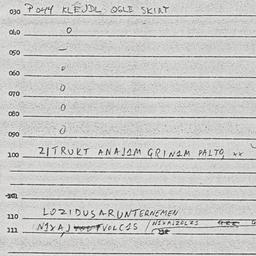 030 P044 KLEJDL OGLE SKIRT
040 0
050 –
060 0
070 0
080 0
090 0
100 ZITRUKT ANAJIM GRINIM PALTO, xx
101
110 LOZIDUSARUNTERNEMEN
111 NIXAJ VOLCIS / NIXAIZOLZS